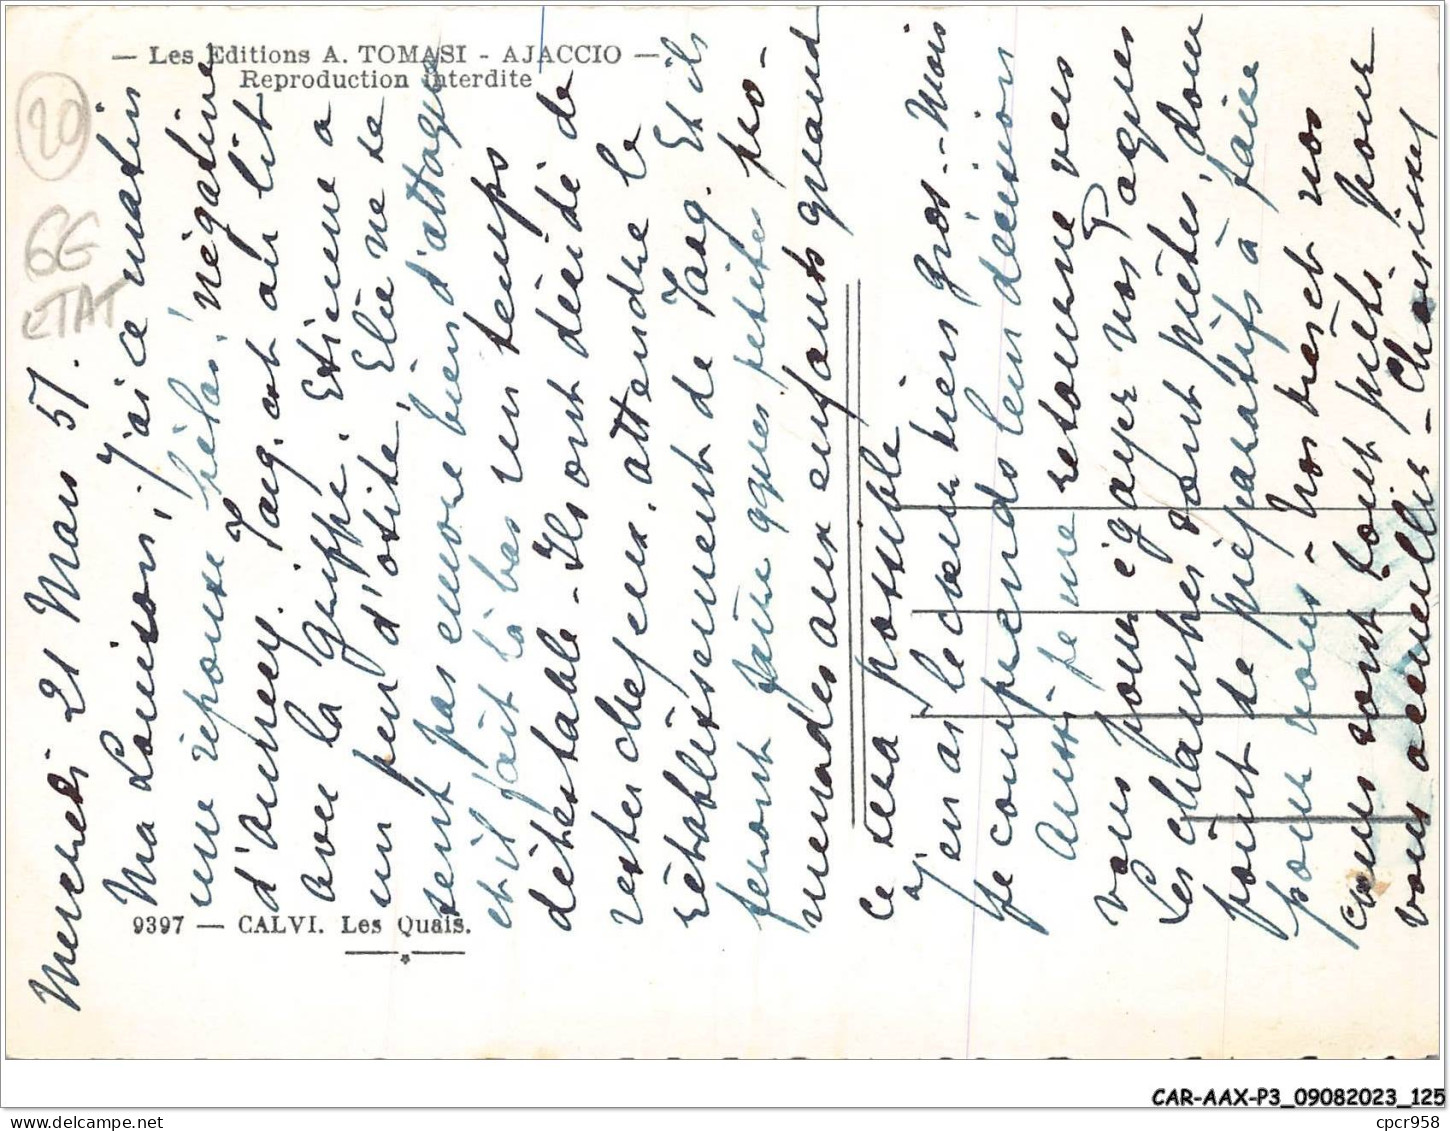 — Les Editions A. TOMASI - AJACCIO —
Reproduction interdite
20
6G
ETAT
9397 — CALVI. Les Quais.
Mercredi 21 Mars 51.
Ma Louison, j'ai ce matin
une réponse, hélas, négative
d'Aurrey. Jacq. est au lit
avec la grippe. Etienne a
un peu d'otite, Elie ne se
sent pas encore bien d'attaque
et il fait là bas un temps
détestable - Ils ont décidé de
rester chez eux, attendre le
rétablissement de Jacq. Et ils
feront faire qques petites pro-
menades aux enfants quand
ce sera possible.
J'en ai le cœur bien gros - Mais
je comprends leur décision
Aussi je me retourne vers
vous pour égayer nos Pâques
Les chambres sont prêtes, donc
point de préparatifs à faire
pour vous - Nos bras et nos
cœurs sont tout prêts pour
vous accueillir - Choisissez
CAR-AAX-P3_09082023_125
https://www.delcampe.net
cpcr958